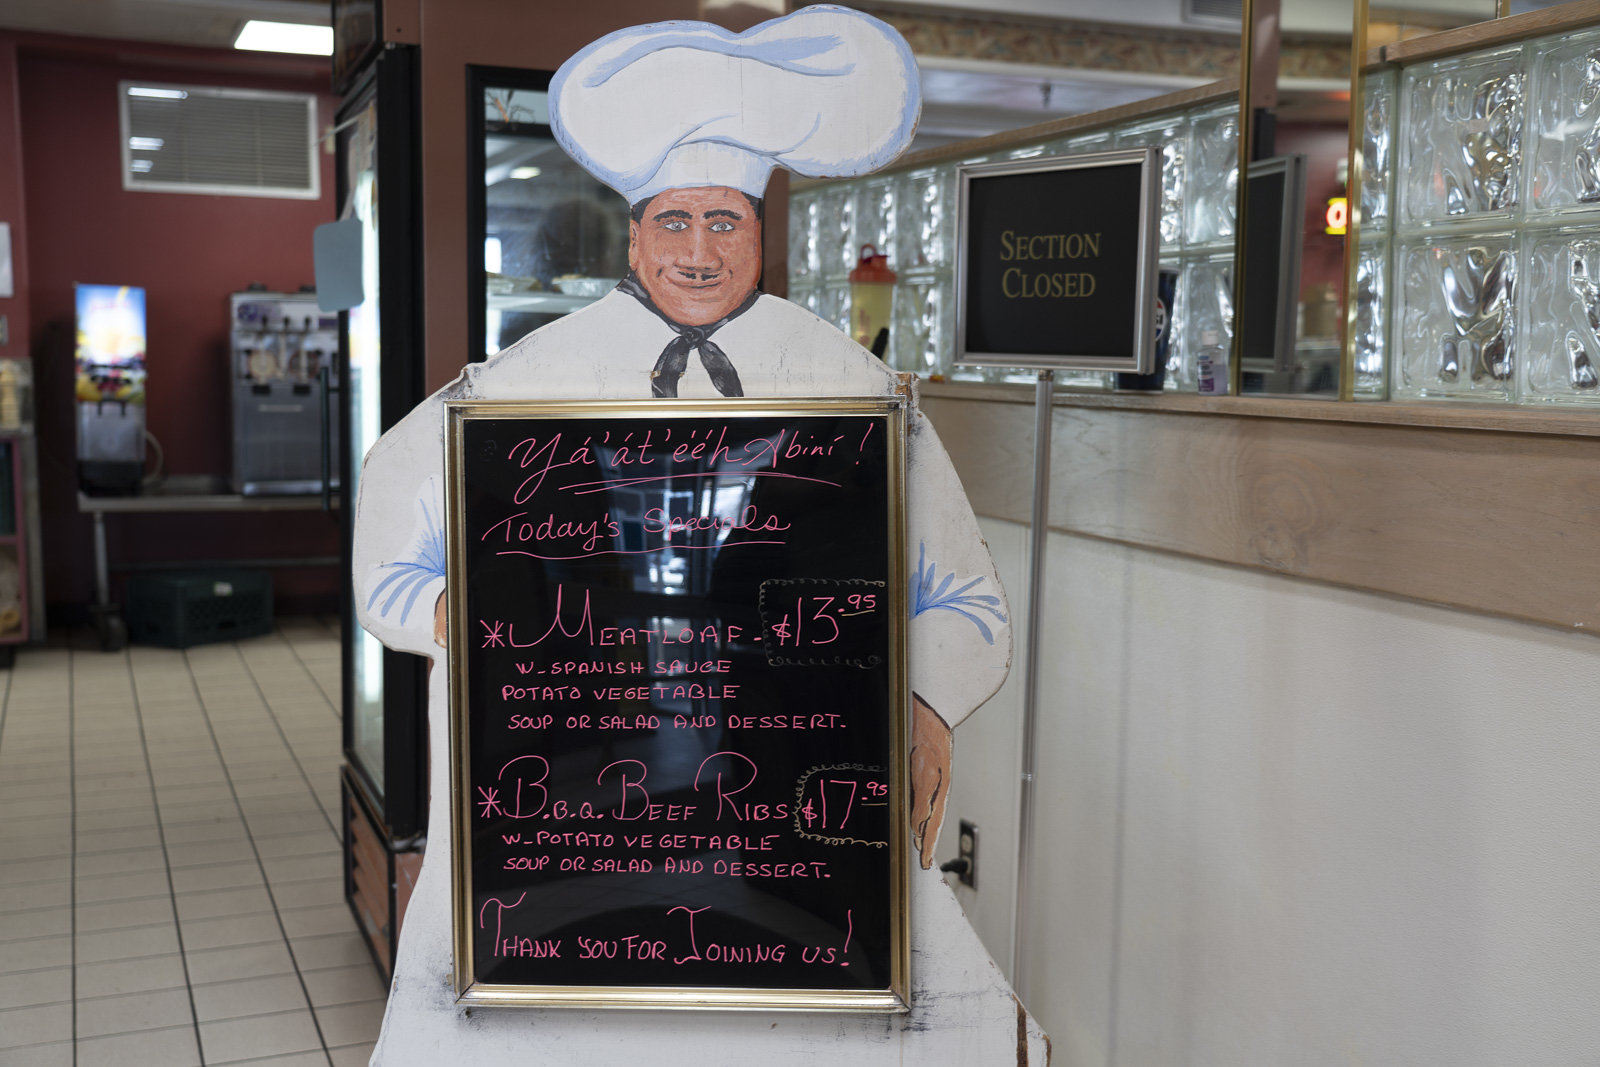 Yá'át'ééh Abiní!
Today's Specials
*MEATLOAF - $13.95
W-SPANISH SAUCE
POTATO VEGETABLE
SOUP OR SALAD AND DESSERT.
*B.B.Q. BEEF RIBS $17.95
W-POTATO VEGETABLE
SOUP OR SALAD AND DESSERT.
THANK YOU FOR JOINING US!
SECTION
CLOSED